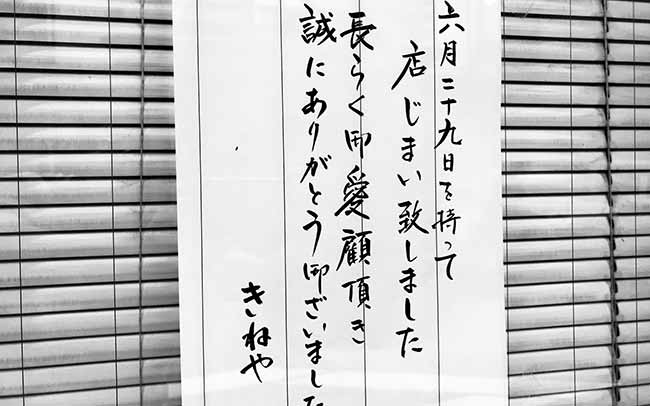 六月二十九日を持って
店じまい致しました
長らく御愛顧頂き
誠にありがとう御ざいました
きねや